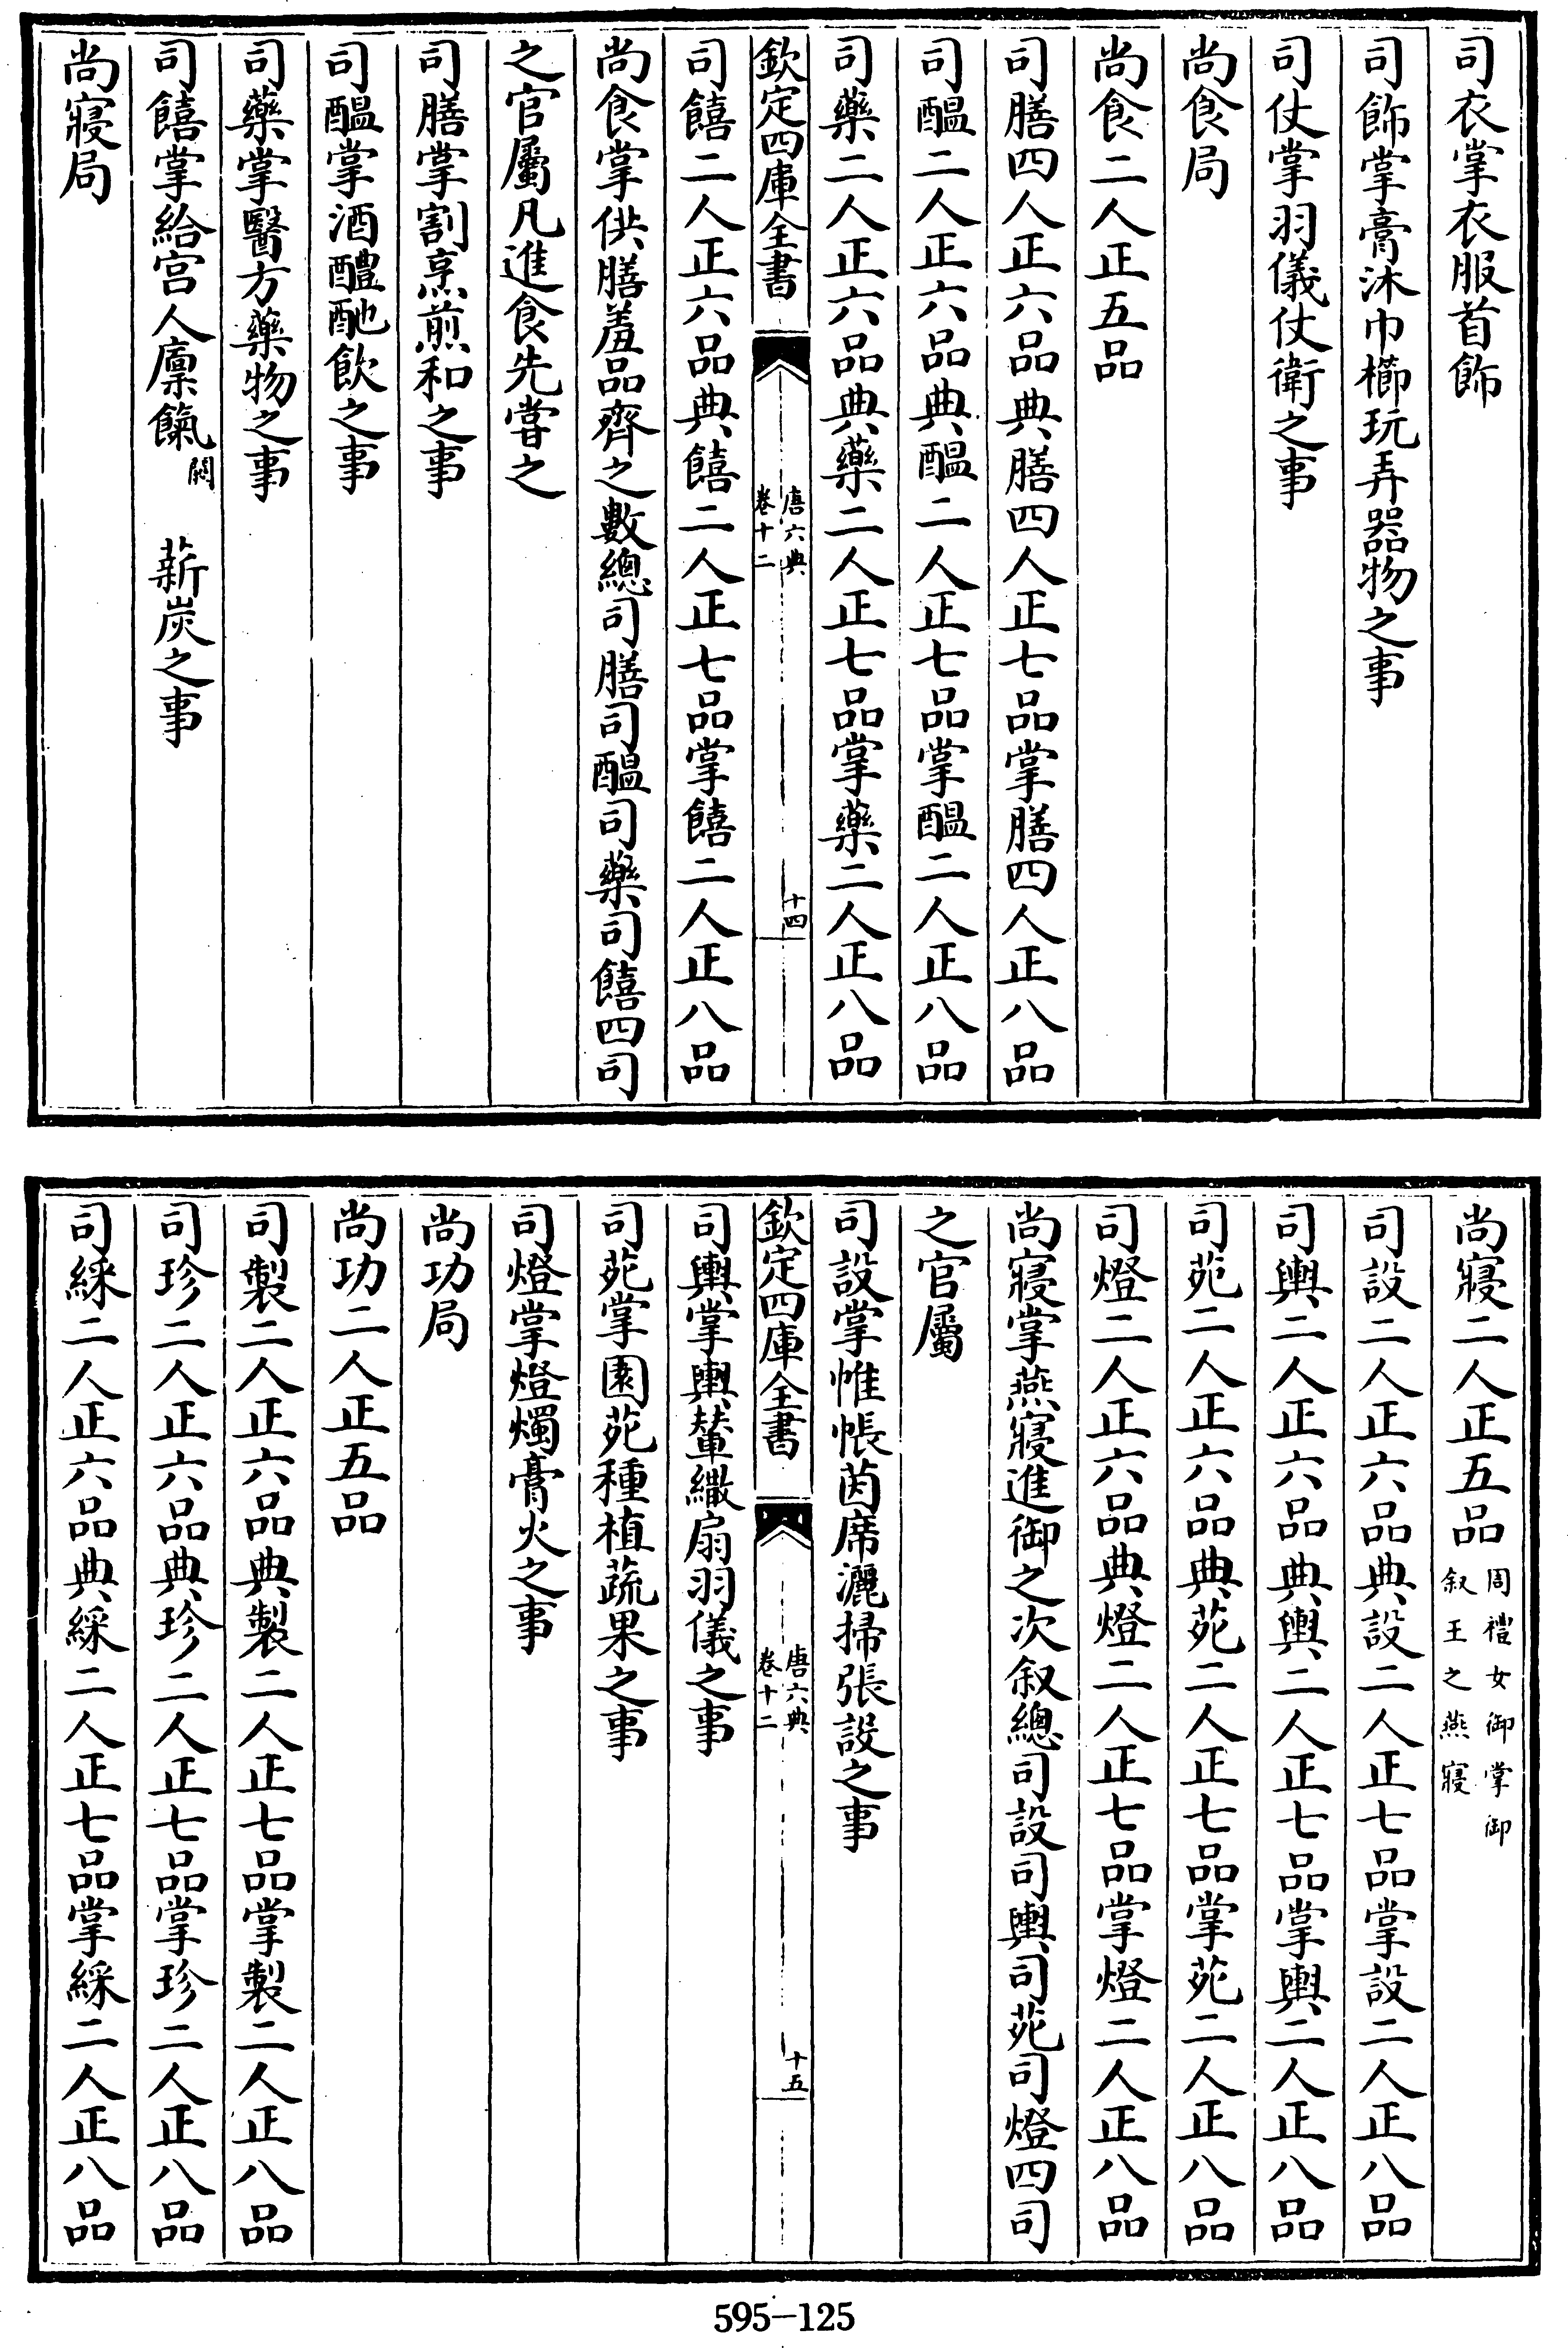 司衣掌衣服首飾
司飾掌膏沐巾櫛玩弄器物之事
司仗掌羽儀仗衛之事
尚食局
尚食二人正五品
司膳四人正六品典膳四人正七品掌膳四人正八品
司醖二人正六品典醖二人正七品掌醖二人正八品
司藥二人正六品典藥二人正七品掌藥二人正八品
欽定四庫全書
唐六典
卷十二
十四
司饎二人正六品典饎二人正七品掌饎二人正八品
尚食掌供膳羞品齊之數總司膳司醖司藥司饎四司
之官屬凡進食先嘗之
司膳掌割烹煎和之事
司醖掌酒醴酏飲之事
司藥掌醫方藥物之事
司饎掌給宫人廩餼闕 薪炭之事
尚寢局
尚寢二人正五品周禮女御掌御
叙王之燕寢
司設二人正六品典設二人正七品掌設二人正八品
司輿二人正六品典輿二人正七品掌輿二人正八品
司苑二人正六品典苑二人正七品掌苑二人正八品
司燈二人正六品典燈二人正七品掌燈二人正八品
尚寢掌燕寢進御之次叙總司設司輿司苑司燈四司
之官屬
司設掌帷帳茵席灑掃張設之事
欽定四庫全書
唐六典
卷十二
十五
司輿掌輿輦繖扇羽儀之事
司苑掌園苑種植蔬果之事
司燈掌燈燭膏火之事
尚功局
尚功二人正五品
司製二人正六品典製二人正七品掌製二人正八品
司珍二人正六品典珍二人正七品掌珍二人正八品
司綵二人正六品典綵二人正七品掌綵二人正八品
595-125